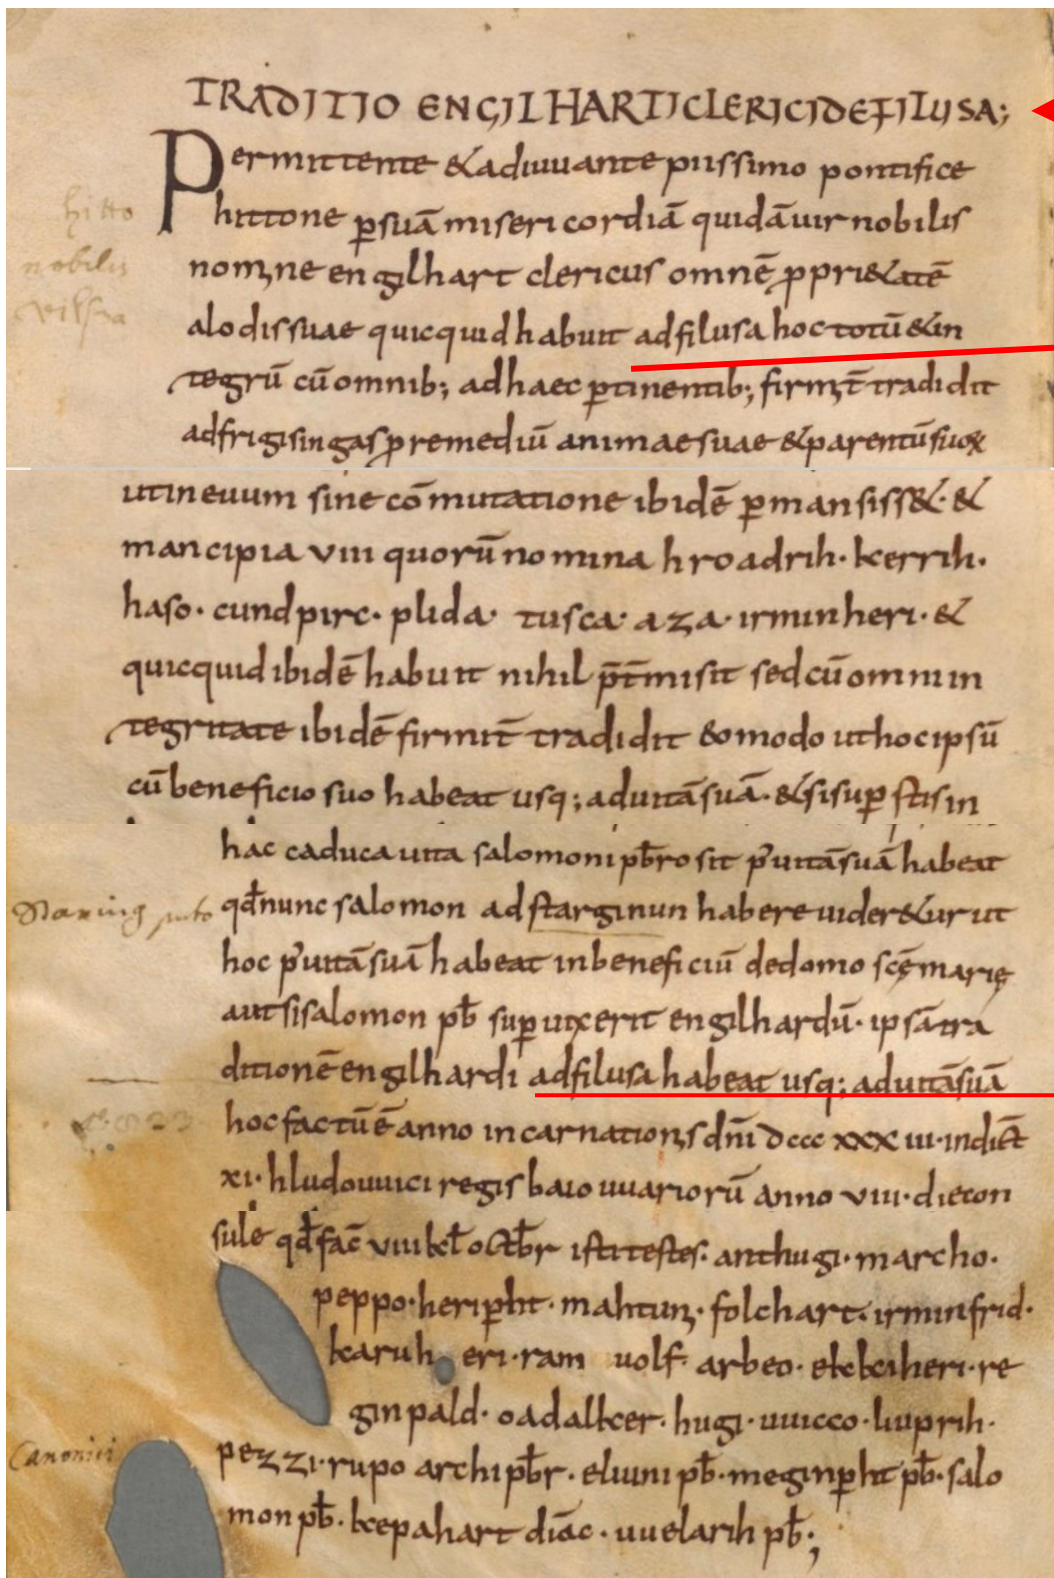 TRADITIO ENGILHARTI CLERICI DE FILUSA;
Permittente & adiuuante piissimo pontifice
hitto
hittone ꝑ suā misericordiā quidā uir nobilis
nobilis
nomine engilhart clericus omnē ꝓpri&atē
vilsva
alodis suae quicquid habuit ad filusa hoc totū & in
tegrū cū omnib; ad haec ꝑtinentib; firmit̄ tradidit
ad frigisingas ꝓ remediū animae suae & parentū suoꝝ
ut in euum sine cōmutatione ibidē ꝑmansiss&· &
mancipia viii quorū nomina hroadrih· kerrih·
haso· cundpirc· plida· tusca· aza· irminheri· &
quicquid ibidē habuit nihil p̄t̄misit sed cū omni in
tegritate ibidē firmit̄ tradidit eomodo ut hoc ipsū
cū beneficio suo habeat usq; ad uitā suā· & si supꝑstis in
hac caduca uita salomoni pb̄ro sit p̄ uitā suā habeat
qd̄ nunc salomon ad starginun habere uider&ur ut
hoc p̄ uitā suā habeat in beneficiū de domo scę̄ marię
aut si salomon pb̄ suꝑuixerit engilhardū· ipsā tra
ditionē engilhardi ad filusa habeat usq; ad uitā suā
hoc factū ē anno incarnationis dn̄i dccc xxx iii· indict̄
xi· hludouuici regis baiouuariorū anno viii· die con
sule qd̄ fac̄ viii kl̄ octb̄r isti testes· anthugi· marcho·
peppo· heriꝑht· mahtuni· folchart· irminfrid·
karuh eri· ram uolf· arbeo· ekkiheri· re
ginpald· oadalker· hugi· uuicco· liuprih·
Canonici
pezzi· rupo archipb̄r· eliuni pb̄· meginꝑht pb̄· salo
mon pb̄· kepahart diac̄· uuelarih pb̄;